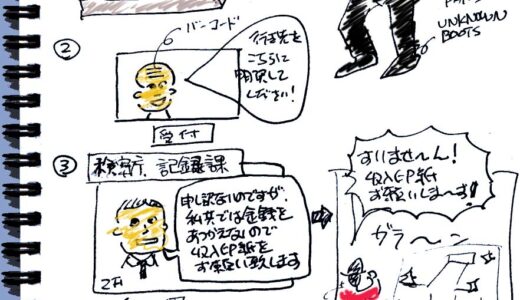 ②
バーコード
行先を
こちらに
明記して
ください!
受付
UNKNOWN
BOOTS
③
検察庁 記録課
申し訳ないのですが、
私共では金銭を
あつかえないので
収入印紙を
お願い致します
すいませ〜ん!
収入印紙
お願いしま〜す!
ガラ〜ン